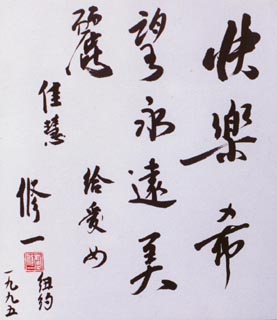 快樂希
望永遠美
麗
給愛女
佳慧
修一
紐約
一九九五